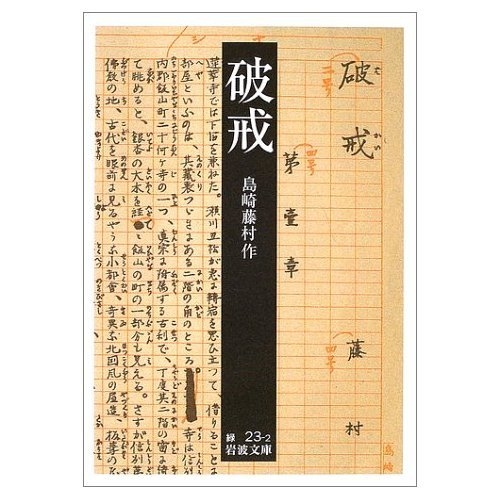 破戒
第壹章
藤村
破戒
島崎藤村作
緑 23-2
岩波文庫
蓮華寺では下宿を兼ねた。瀬川丑松が急に轉宿を思ひ立つて、借りること
部屋といふのは、其藏裏つゞきにある二階の角のところ。寺は信
内郡飯山町二十何ヶ寺の一つ、真宗に附属する古刹で、丁度其二階の窓
て眺めると、銀杏の大木を経てゝ飯山の町の一部分も見える。さすが信
佛教の地、古代を眼前に見るやうな小都會、奇異な北国風の屋造、板葺の